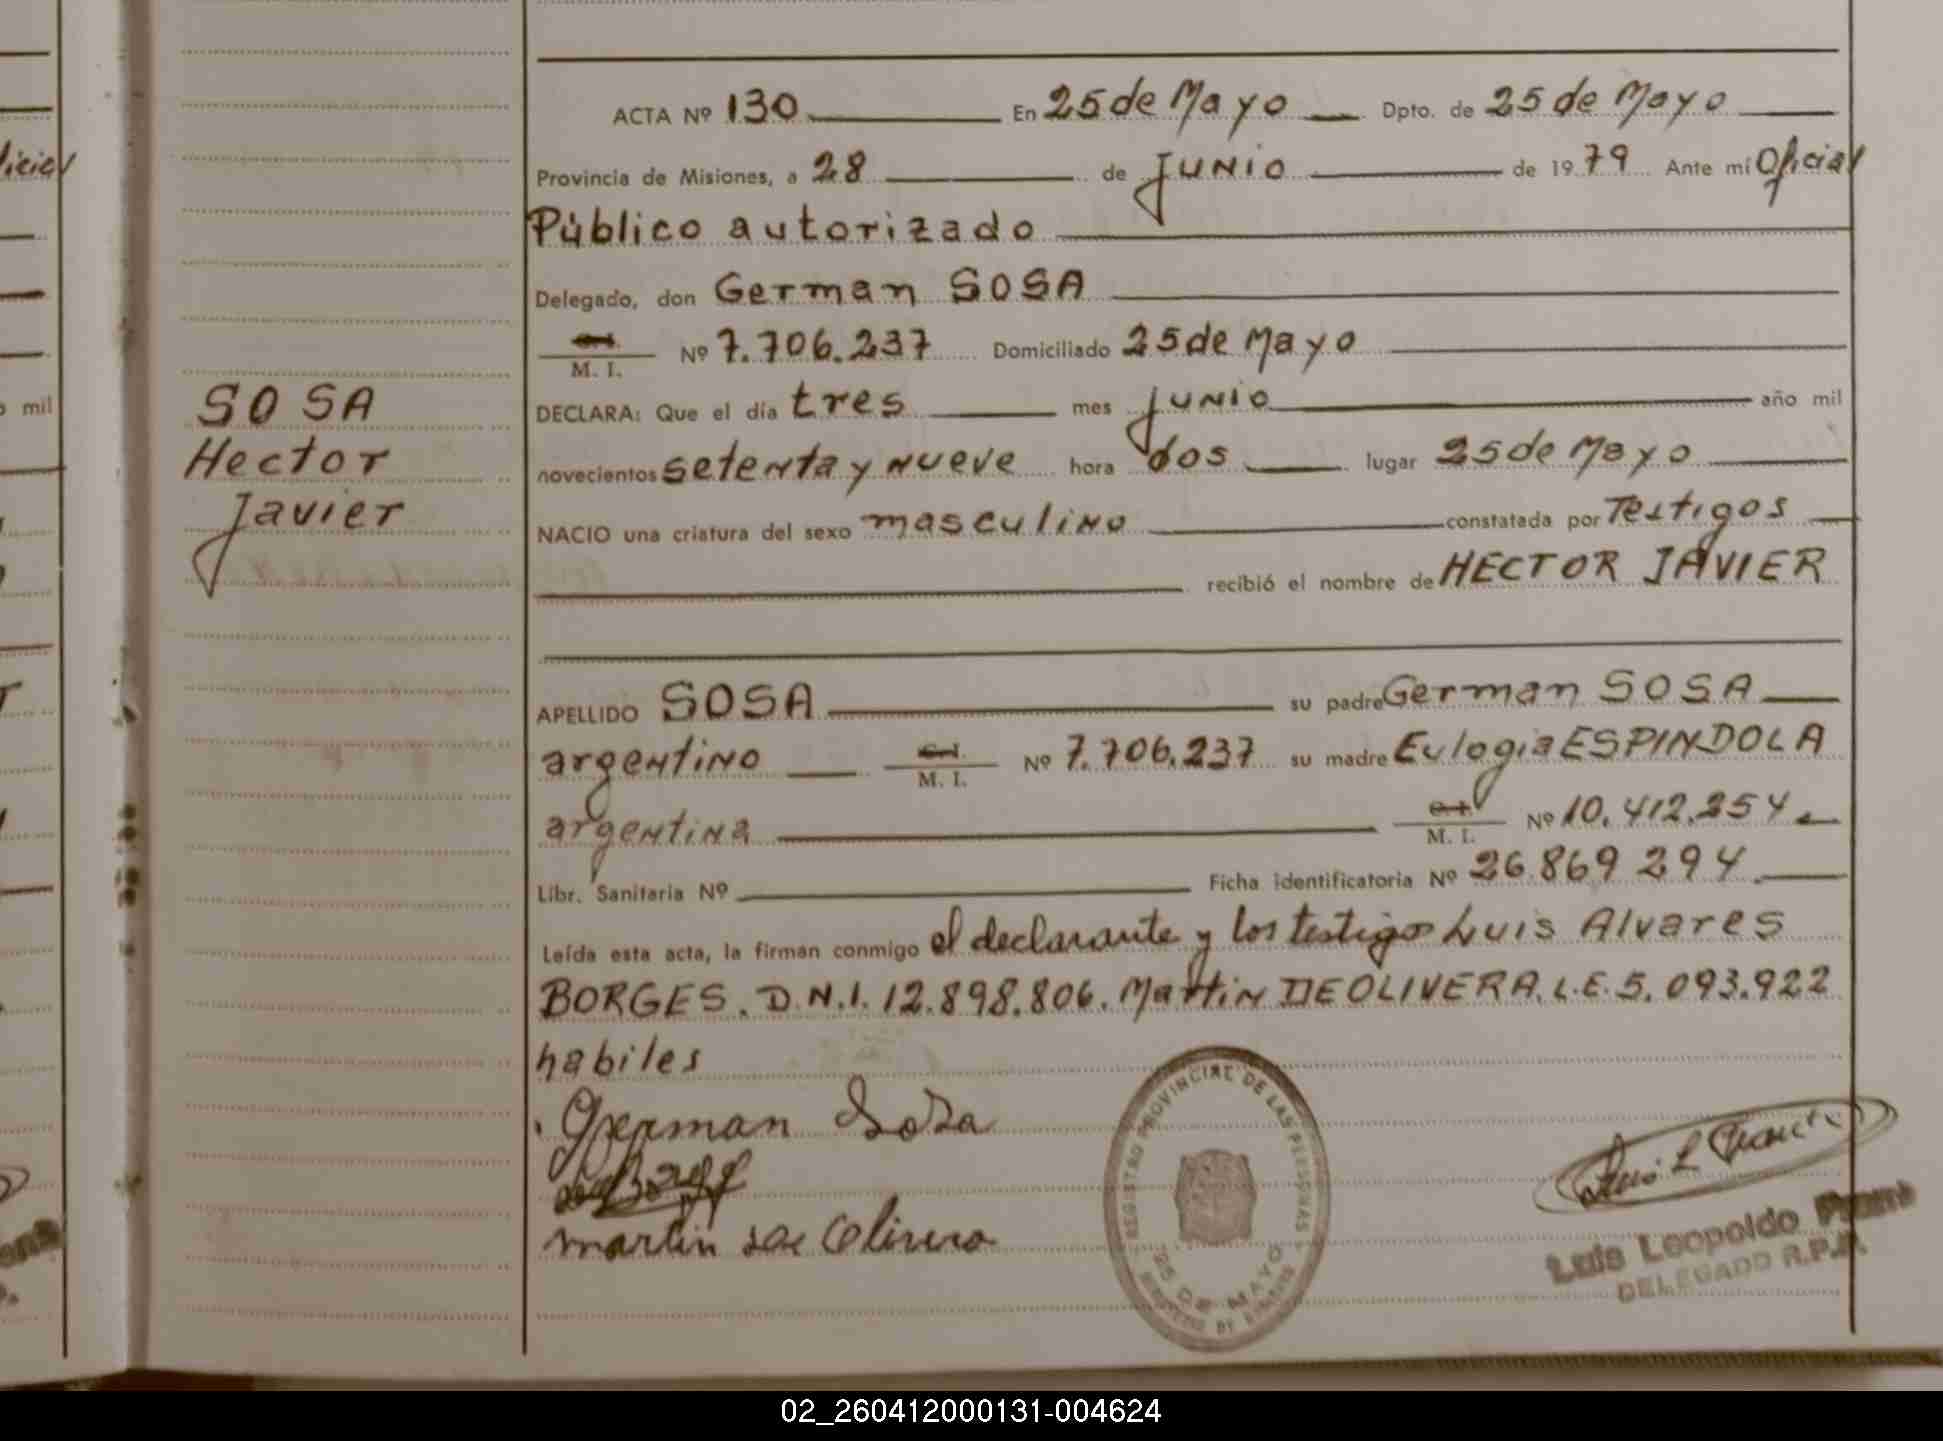 ACTA Nº 130 En 25 de Mayo Dpto. de 25 de Mayo
Provincia de Misiones, a 28 de Junio de 1979 Ante mí Oficial
Público autorizado
Delegado, don German SOSA
M. I. Nº 7.706.237 Domiciliado 25 de Mayo
DECLARA: Que el día tres mes junio año mil
novecientos setenta y nueve hora dos lugar 25 de Mayo
NACIO una criatura del sexo masculino constatada por Testigos
recibió el nombre de HECTOR JAVIER
SOSA
Hector
Javier
APELLIDO SOSA su padre German SOSA
argentino M. I. Nº 7.706.237 su madre Eulogia ESPINDOLA
argentina M. I. Nº 10.412.254
Libr. Sanitaria Nº Ficha identificatoria Nº 26.869 294
Leída esta acta, la firman conmigo el declarante y los testigos Luis Alvares
BORGES. D.N.I. 12.898.806. Martin DE OLIVERA. L.E. 5.093.922
habiles
German Sosa
martin de Olivera
REGISTRO PROVINCIAL DE LAS PERSONAS
25 DE MAYO
Luis Leopoldo
DELEGADO R.P.P.
02_260412000131-004624